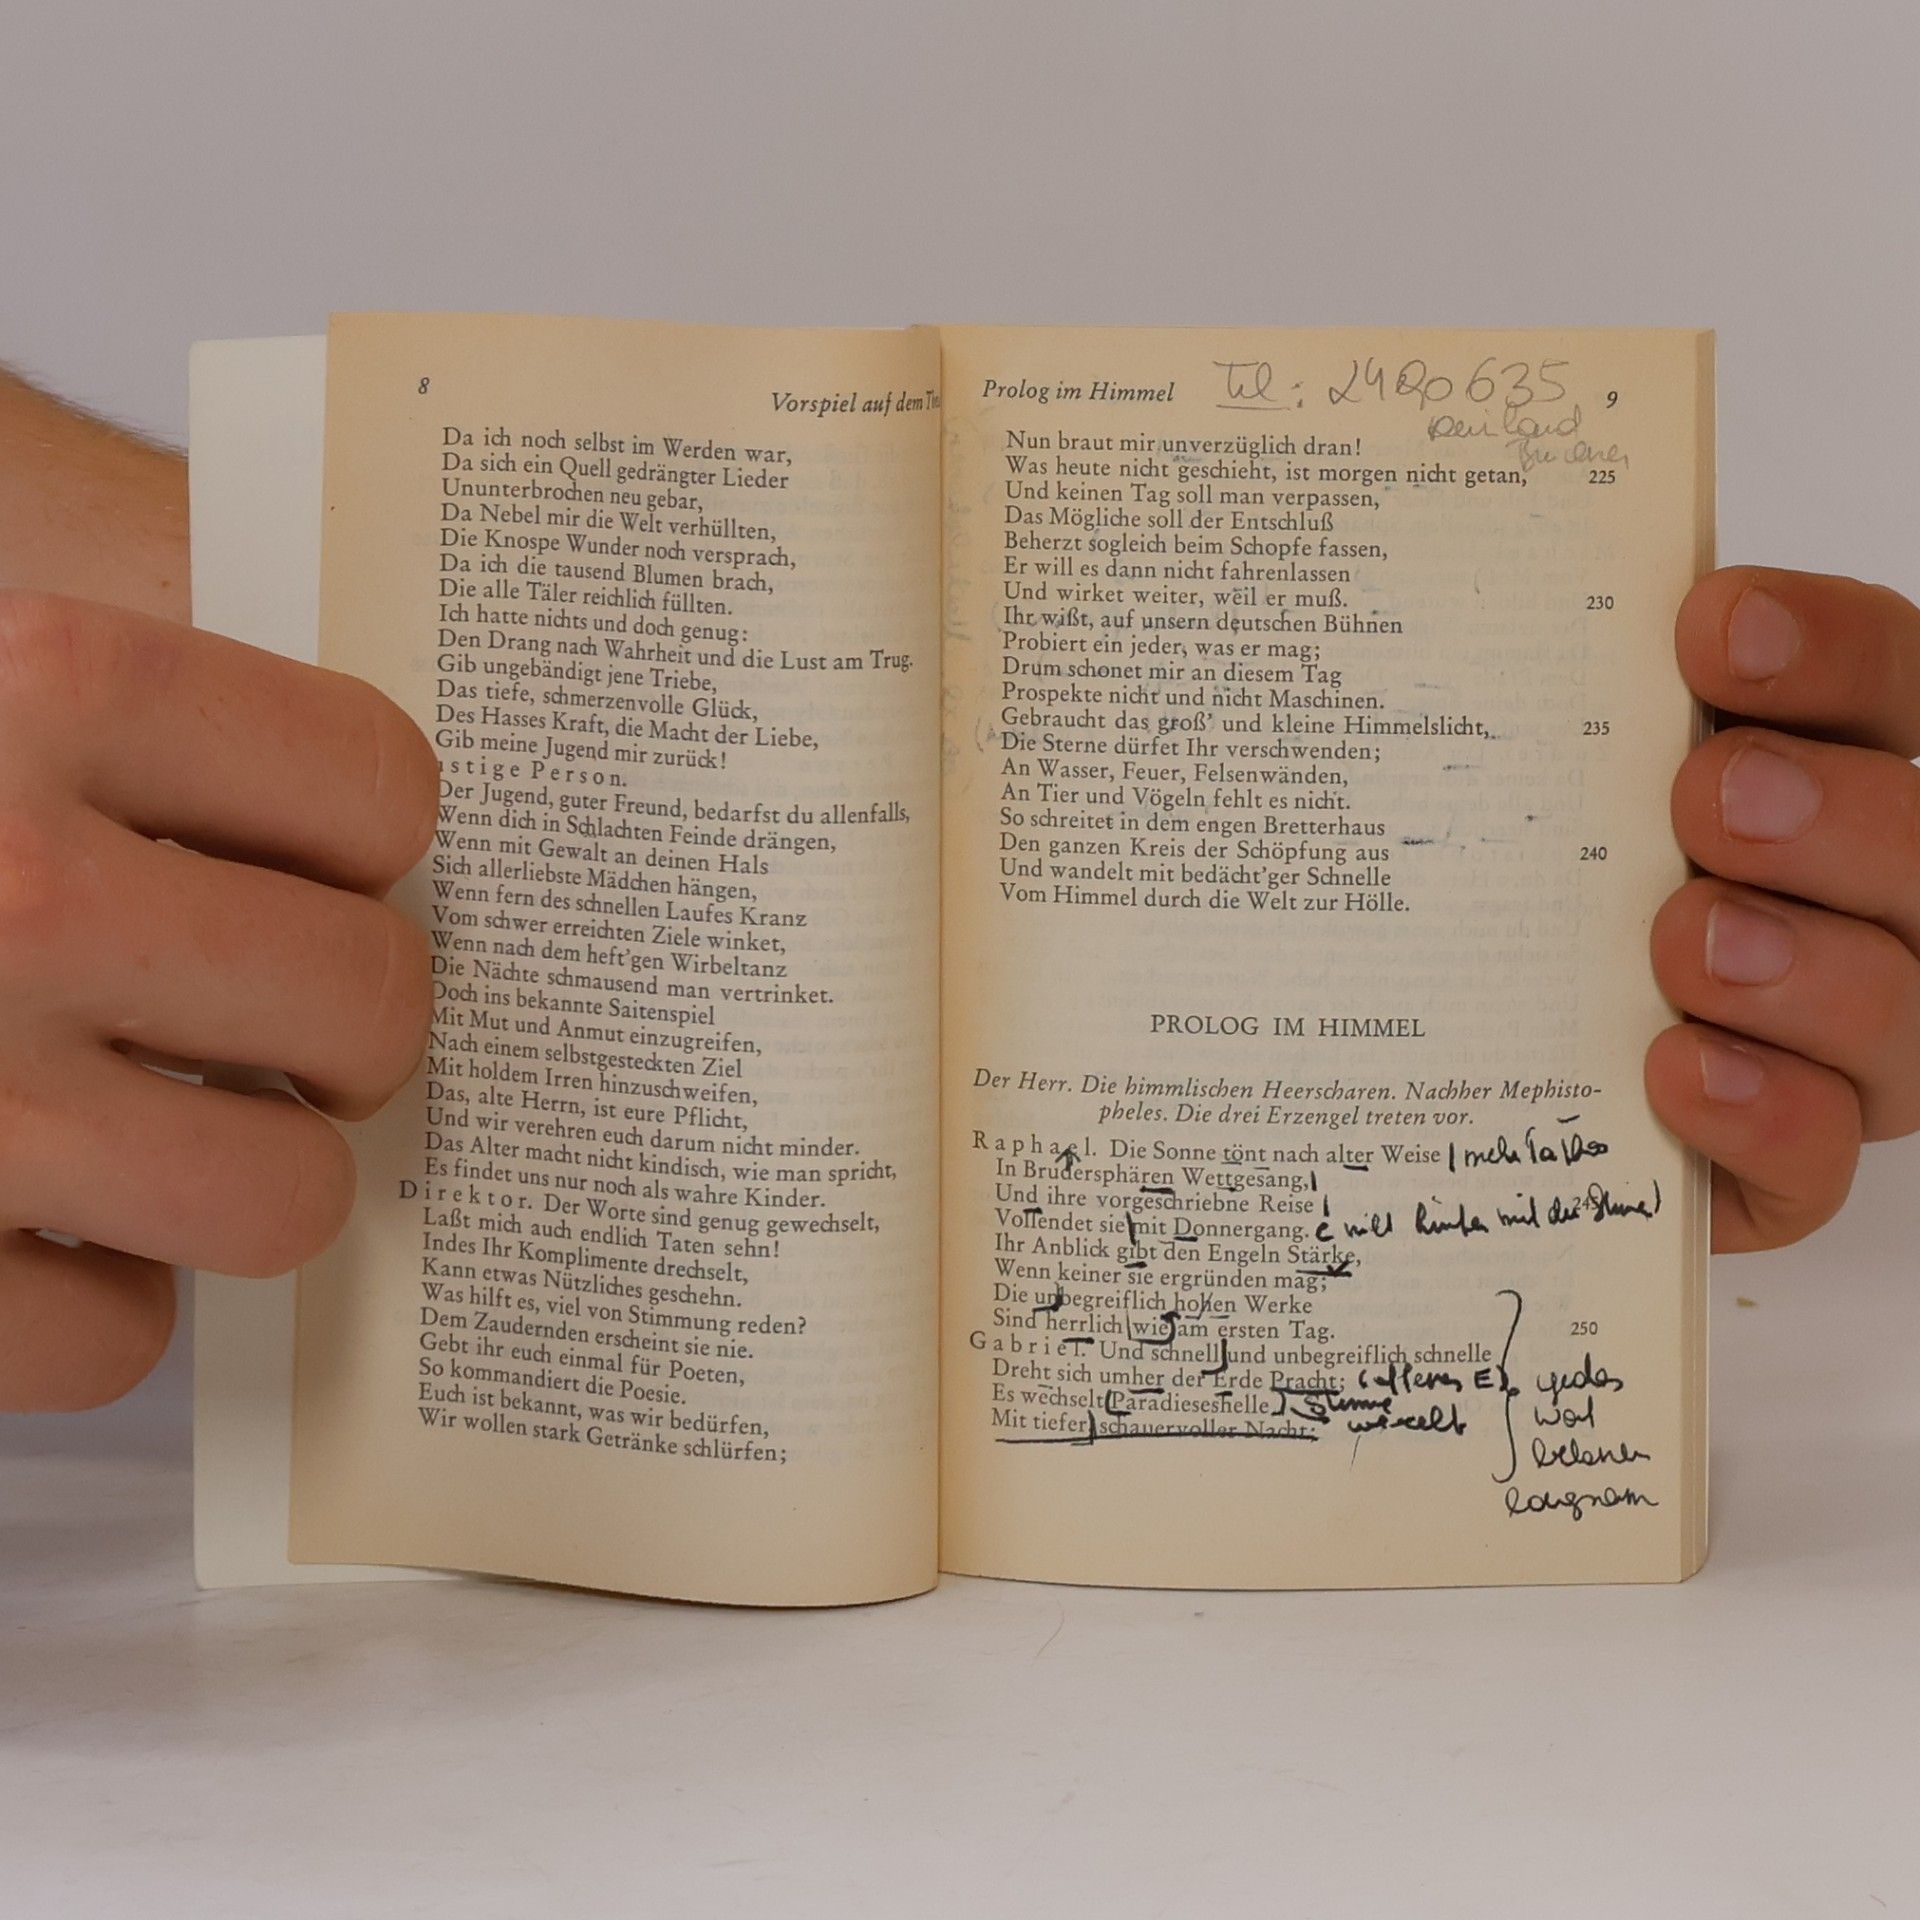 8
Vorspiel auf dem
Da ich noch selbst im Werden war,
Da sich ein Quell gedrängter Lieder
Ununterbrochen neu gebar,
Da Nebel mir die Welt verhüllten,
Die Knospe Wunder noch versprach,
Da ich die tausend Blumen brach,
Die alle Täler reichlich füllten.
Ich hatte nichts und doch genug:
Den Drang nach Wahrheit und die Lust am Trug.
Gib ungebändigt jene Triebe,
Das tiefe, schmerzenvolle Glück,
Des Hasses Kraft, die Macht der Liebe,
Gib meine Jugend mir zurück!
stige Person.
Der Jugend, guter Freund, bedarfst du allenfalls,
Wenn dich in Schlachten Feinde drängen,
Wenn mit Gewalt an deinen Hals
Sich allerliebste Mädchen hängen,
Wenn fern des schnellen Laufes Kranz
Vom schwer erreichten Ziele winket,
Wenn nach dem heft'gen Wirbeltanz
Die Nächte schmausend man vertrinket.
Doch ins bekannte Saitenspiel
Mit Mut und Anmut einzugreifen,
Nach einem selbstgesteckten Ziel
Mit holdem Irren hinzuschweifen,
Das, alte Herrn, ist eure Pflicht,
Und wir verehren euch darum nicht minder.
Das Alter macht nicht kindisch, wie man spricht,
Es findet uns nur noch als wahre Kinder.
Direktor. Der Worte sind genug gewechselt,
Laßt mich auch endlich Taten sehn!
Indes Ihr Komplimente drechselt,
Kann etwas Nützliches geschehn.
Was hilft es, viel von Stimmung reden?
Dem Zaudernden erscheint sie nie.
Gebt ihr euch einmal für Poeten,
So kommandiert die Poesie.
Euch ist bekannt, was wir bedürfen,
Wir wollen stark Getränke schlürfen;
Prolog im Himmel Tel: 635 9
Nun braut mir unverzüglich dran!
Was heute nicht geschieht, ist morgen nicht getan, 225
Und keinen Tag soll man verpassen,
Das Mögliche soll der Entschluß
Beherzt sogleich beim Schopfe fassen,
Er will es dann nicht fahrenlassen
Und wirket weiter, weil er muß. 230
Ihr wißt, auf unsern deutschen Bühnen
Probiert ein jeder, was er mag;
Drum schonet mir an diesem Tag
Prospekte nicht und nicht Maschinen.
Gebraucht das groß' und kleine Himmelslicht, 235
Die Sterne dürfet Ihr verschwenden;
An Wasser, Feuer, Felsenwänden,
An Tier und Vögeln fehlt es nicht.
So schreitet in dem engen Bretterhaus
Den ganzen Kreis der Schöpfung aus 240
Und wandelt mit bedächt'ger Schnelle
Vom Himmel durch die Welt zur Hölle.
PROLOG IM HIMMEL
Der Herr. Die himmlischen Heerscharen. Nachher Mephisto-
pheles. Die drei Erzengel treten vor.
Raphael. Die Sonne tönt nach alter Weise
In Brudersphären Wettgesang,
Und ihre vorgeschriebne Reise
Vollendet sie mit Donnergang.
Ihr Anblick gibt den Engeln Stärke,
Wenn keiner sie ergründen mag;
Die unbegreiflich hohen Werke
Sind herrlich wie am ersten Tag. 250
Gabriel. Und schnell und unbegreiflich schnelle
Dreht sich umher der Erde Pracht;
Es wechselt Paradieseshelle
Mit tiefer, schauervoller Nacht;